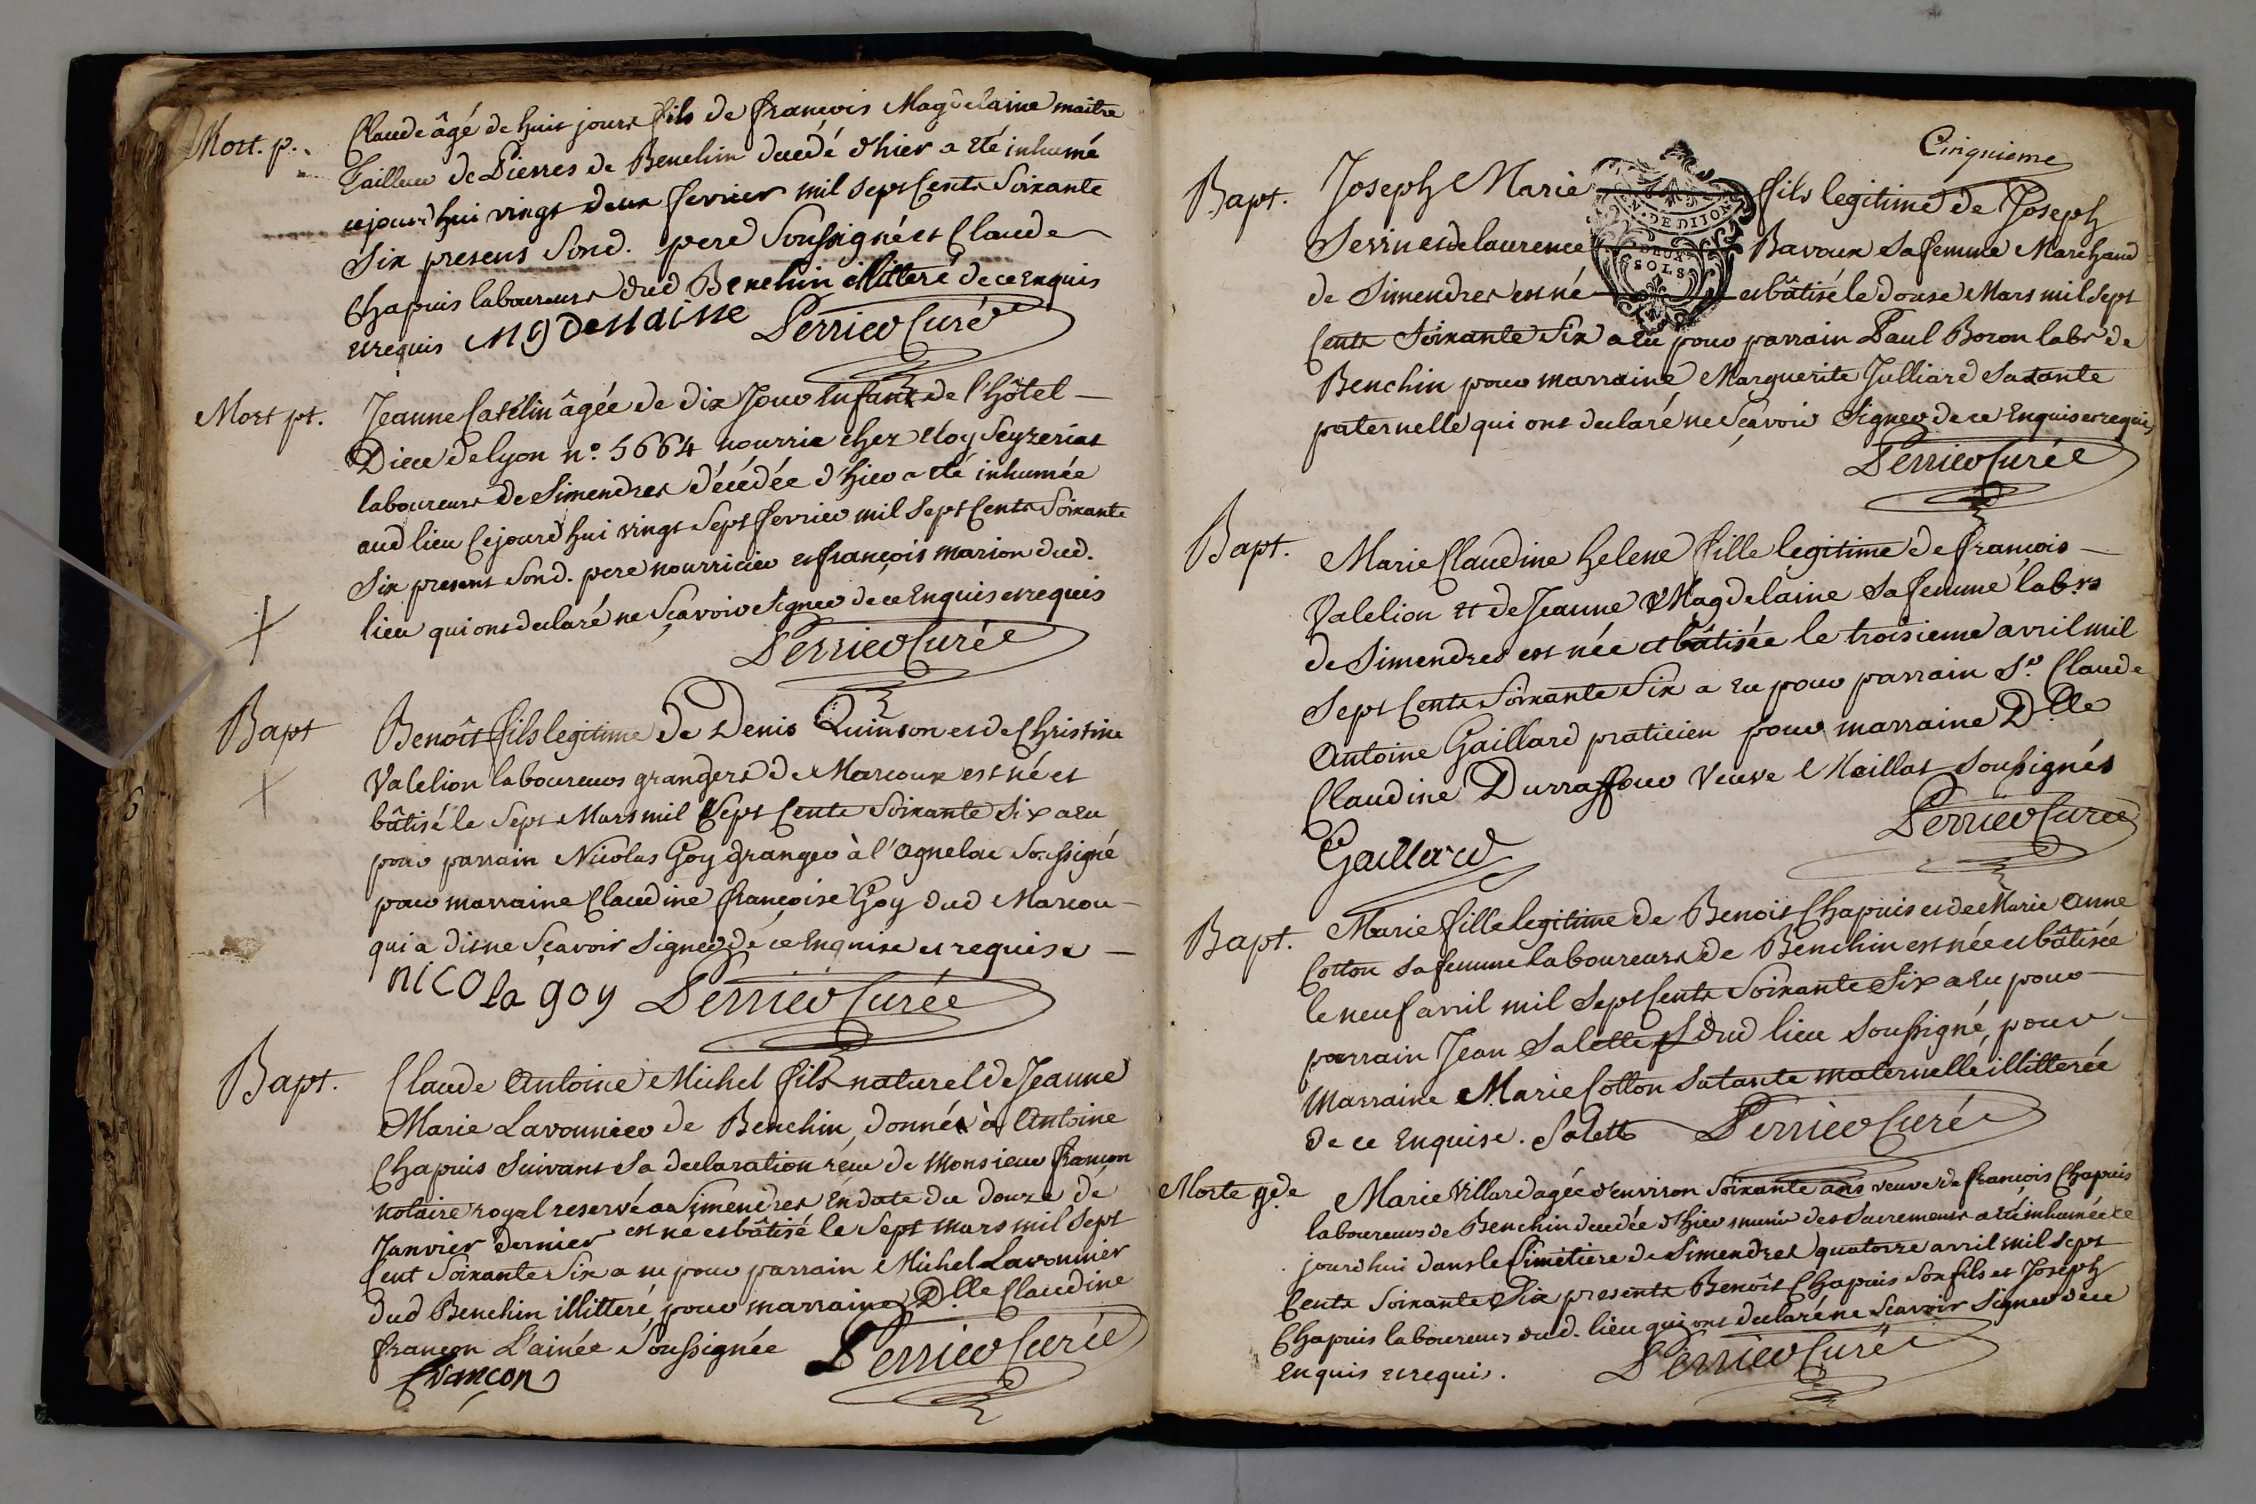 Mort. p.
Claude âgé de huit jours fils de françois Magdelaine maitre
Tailleur de Pierres de Benchin decedé d'hier a été inhumé
cejourd'hui vingt deux fevrier mil sept Cents Soixante
Six presens Sond. pere Soussigné et Claude
Chapuis laboureurs dud Benchin illitteré de ce Enquis
et requis Magdelaine Perrier Curé
Mort pt.
Jeanne Catélin âgée de dix Jour Enfant de l'Hôtel
Dieu de Lyon n.º 5664 nourrie chez Eloy Seyzeriat
laboureurs de Simendres décédée d'hier a été inhumée
aud lieu Cejourd'hui vingt Sept fevrier mil Sept Cents Soixante
Six present Sond. pere nourricier et françois marion dud.
lieu qui ont declaré ne Sçavoir Signer de ce Enquis et requis
Perrier Curé
Bapt
Benoît fils legitime de Denis Quinson et de Christine
Valelion laboureurs grangers de Marcoux est né et
bâtisé le Sept Mars mil Sept Cents Soixante Six a eu
pour parrain Nicolas Goy granger à l'agnelou Soussigné
pour marraine Claudine françoise Goy dud Marcou
qui a dit ne Sçavoir Signer de ce Enquise et requise
nicola goy Perrier Curé
Bapt.
Claude Antoine Michel fils naturel de Jeanne
Marie Lavonnier de Benchin, donné à Antoine
Chapuis Suivant Sa declaration reçue de Monsieur françon
notaire royal reservé a Simendres En date du douze de
Janvier dernier est né et bâtisé le Sept mars mil Sept
Cent Soixante Six a eu pour parrain Michel Lavonnier
dud Benchin illitteré, pour marraine D.lle Claudine
françon L'ainée Soussignée Perrier Curé
françon
Cinquieme
Bapt.
Joseph Marie fils legitime de Joseph
Serrin et de laurence Bavoux Sa femme Marchand
de Simendres est né et bâtisé le douse Mars mil Sept
Cents Soixante Six a eu pour parrain Paul Boron labr de
Benchin pour marraine Marguerite Julliard Sa tante
paternelle qui ont declaré ne Sçavoir Signer de ce Enquis et requis
Perrier Curé
N. DE DIJON
DEUX
SOLS
Bapt.
Marie Claudine helene fille legitime de françois
Valelion et de Jeanne Magdelaine Sa femme lab.rs
de Simendres est née et bâtisée le troisieme avril mil
Sept Cents Soixante Six a eu pour parrain S.r Claude
Antoine Gaillard praticien pour marraine D.lle
Claudine Durraffour Veuve Maillat Soussignés
Perrier Curé
Gaillard
Bapt.
Marie fille legitime de Benoit Chapuis et de Marie Anne
Cotton Sa femme laboureurs de Benchin est née et bâtisée
le neuf avril mil Sept Cents Soixante Six a eu pour
parrain Jean Salette dud lieu Soussigné, pour
Marraine Marie Cotton Sa tante maternelle illitterée
de ce Enquise. Salette Perrier Curé
Morte g.de
Marie Villard agée d'environ Soixante ans veuve de françois Chapuis
laboureurs de Benchin decedée d'hier munie des Sacrements a été inhumée ce
jourd'hui dans le Cimetiere de Simendres quatorze avril mil Sept
Cents Soixante Six presents Benoît Chapuis Son fils et Joseph
Chapuis laboureurs dud. lieu qui ont declaré ne Scavoir Signer de ce
Enquis et requis. Perrier Curé